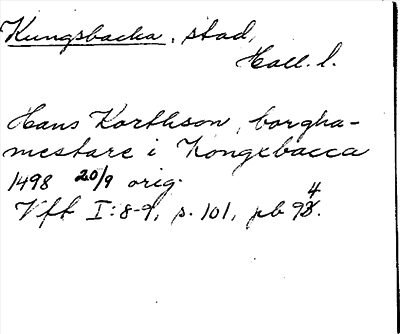 Kungsbacka, stad,
Hall. l.
Hans Korthson, borgha-
mestare i Kongxbacca
1498 20/9 orig.
Vft I:8-9, s. 101, pb 94.